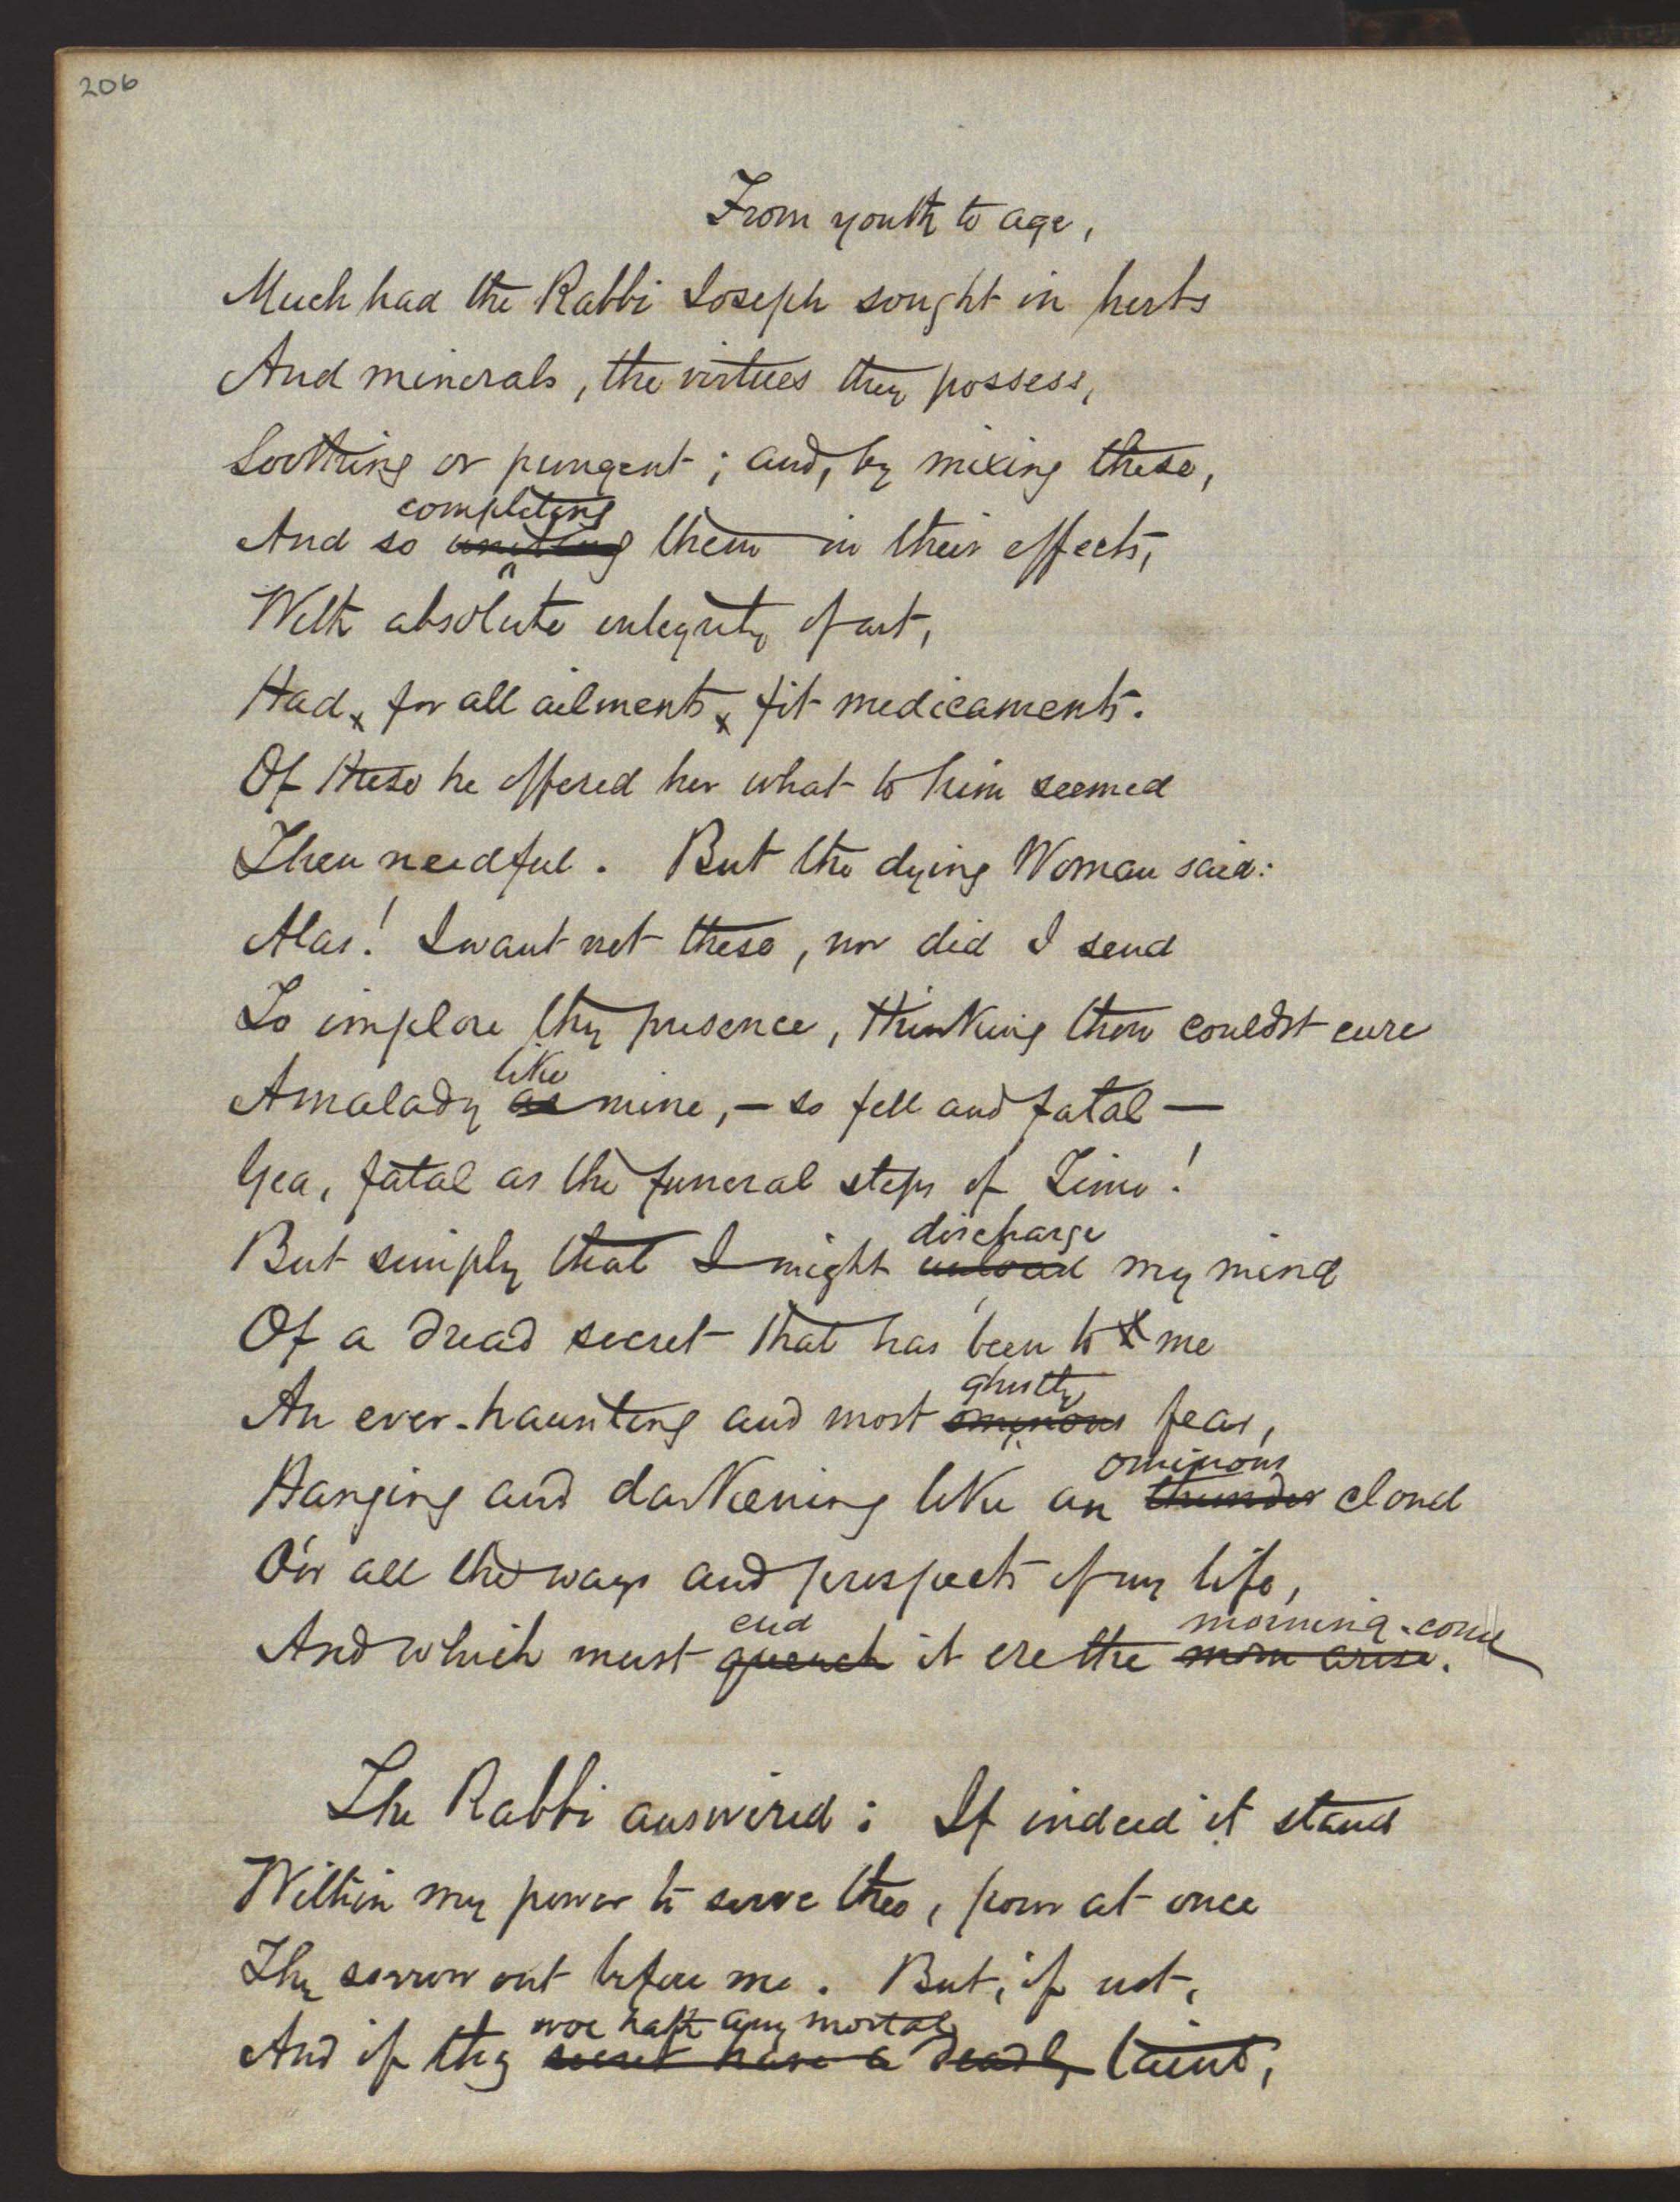 206
From youth to age,
Much had the Rabbi Joseph sought in herbs
And minerals, the virtues they possess,
Soothing or pungent; and, by mixing these,
completing
And so uniting them in their effects,
With absolute integrity of art,
Had, for all ailments, fit medicaments.
Of these he offered her what to him seemed
Then needful. But the dying Woman said:
Alas! I want not these, nor did I send
To implore thy presence, thinking thou couldst cure
like
A malady as mine, — so fell and fatal —
Yea, fatal as the funeral steps of Time!
discharge
But simply that I might unload my mind
Of a dread secret that has been to me
ghostly
An ever-haunting and most ominous fear,
ominous
Hanging and darkening like an thunder cloud
O'er all the ways and prospects of my life,
end morning come
And which must quench it ere the morn arise.
The Rabbi answered: If indeed it stand
Within my power to serve thee, pour at once
Thy sorrow out before me. But, if not,
woe hath any mortal
And if thy secret have a deadly taint,